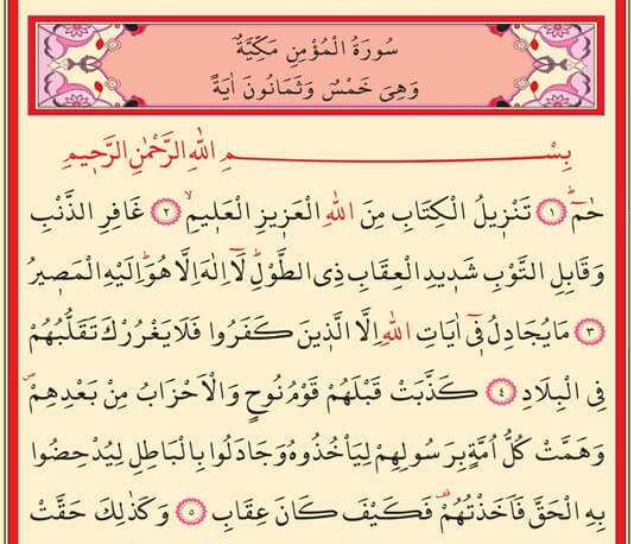 سُورَةُ الْمُؤْمِنِ مَكِّيَّةٌ
وَهِىَ خَمْسٌ وَثَمَانُونَ اٰيَةً
بِسْمِ اللّٰهِ الرَّحْمٰنِ الرَّحٖيمِ
حٰمٓ ۚ ﴿١﴾ تَنْزٖيلُ الْكِتَابِ مِنَ اللّٰهِ الْعَزٖيزِ الْعَلٖيمِ ۙ ﴿٢﴾ غَافِرِ الذَّنْبِ
وَقَابِلِ التَّوْبِ شَدٖيدِ الْعِقَابِ ذِى الطَّوْلِ ؕ لَٓا اِلٰهَ اِلَّا هُوَ ؕ اِلَيْهِ الْمَصٖيرُ
﴿٣﴾ مَا يُجَادِلُ فٖٓى اٰيَاتِ اللّٰهِ اِلَّا الَّذٖينَ كَفَرُوا فَلَا يَغْرُرْكَ تَقَلُّبُهُمْ
فِى الْبِلَادِ ﴿٤﴾ كَذَّبَتْ قَبْلَهُمْ قَوْمُ نُوحٍ وَالْاَحْزَابُ مِنْ بَعْدِهِمْ ۖ
وَهَمَّتْ كُلُّ اُمَّةٍ بِرَسُولِهِمْ لِيَاْخُذُوهُ وَجَادَلُوا بِالْبَاطِلِ لِيُدْحِضُوا
بِهِ الْحَقَّ فَاَخَذْتُهُمْ ۠ فَكَيْفَ كَانَ عِقَابِ ﴿٥﴾ وَكَذٰلِكَ حَقَّتْ